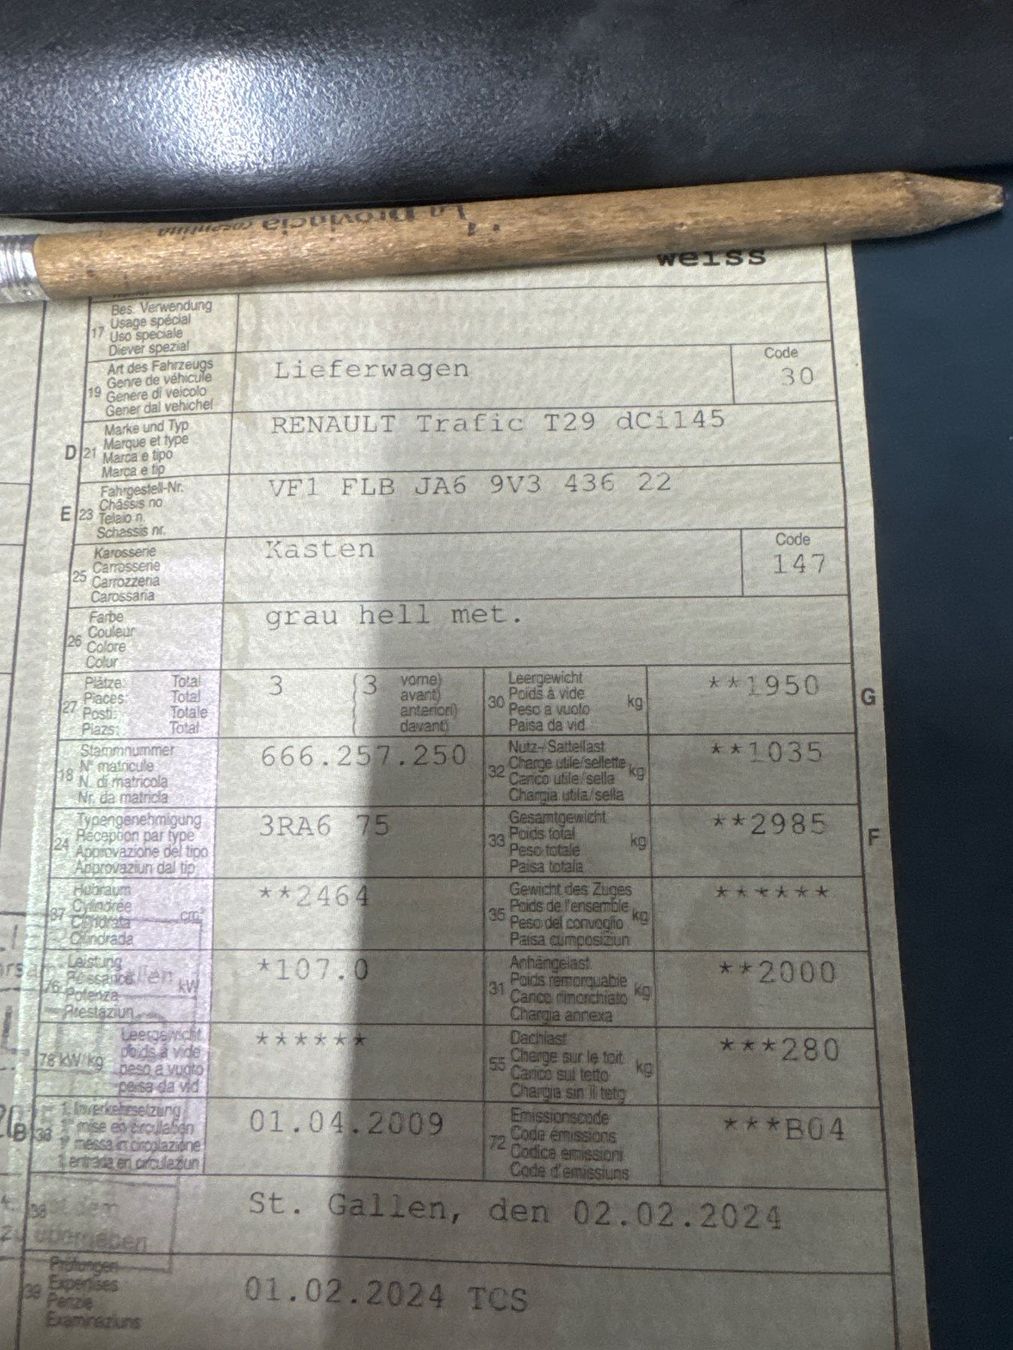 La Provincia cosentina
weiss
17 Bes. Verwendung
Usage spécial
Uso speciale
Diever spezial
19 Art des Fahrzeugs
Genre de véhicule
Genere di veicolo
Gener dal vehichel
Lieferwagen
Code
30
D 21 Marke und Typ
Marque et type
Marca e tipo
Marca e tip
RENAULT Trafic T29 dCi145
E 23 Fahrgestell-Nr.
Châssis no
Telaio n.
Schassis nr.
VF1 FLB JA6 9V3 436 22
25 Karosserie
Carrosserie
Carrozzeria
Carossaria
Kasten
Code
147
26 Farbe
Couleur
Colore
Colur
grau hell met.
27 Plätze: Total
Places: Total
Posti: Totale
Plazs: Total
3 (3 vorne)
avant)
anteriori)
davant)
30 Leergewicht
Poids à vide kg
Peso a vuoto
Paisa da vid
**1950 G
18 Stammnummer
N° matricule
N. di matricola
Nr. da matricla
666.257.250
32 Nutz-/Sattellast
Charge utile/sellette kg
Carico utile/sella
Chargia utila/sella
**1035
24 Typengenehmigung
Réception par type
Approvazione del tipo
Approvaziun dal tip
3RA6 75
33 Gesamtgewicht
Poids total kg
Peso totale
Paisa totala
**2985 F
37 Hubraum
Cylindrée cm³
Cilindrata
Cilindrada
**2464
35 Gewicht des Zuges
Poids de l'ensemble kg
Peso del convoglio
Paisa cumposiziun
******
76 Leistung
Puissance kW
Potenza
Prestaziun
*107.0
31 Anhängelast
Poids remorquable kg
Carico rimorchiato
Chargia annexa
**2000
78 kW/kg Leergewicht
poids à vide
peso a vuoto
paisa da vid
******
55 Dachlast
Charge sur le toit kg
Carico sul tetto
Chargia sin il tetg
***280
B 36 1. Inverkehrsetzung
1re mise en circulation
1a messa in circolazione
1. entrada en circulaziun
01.04.2009
72 Emissionscode
Code émissions
Codice emissioni
Code d'emissiuns
***B04
38
St. Gallen, den 02.02.2024
39 Prüfungen
Expertises
Perizie
Examinaziuns
01.02.2024 TCS